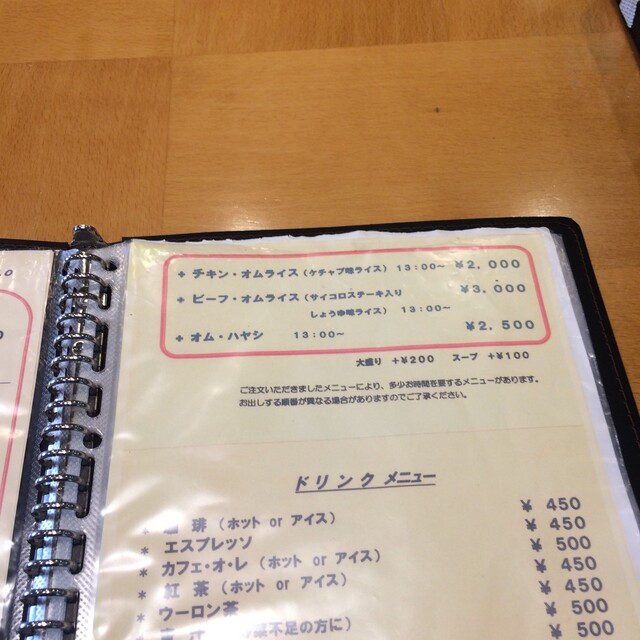 + チキン・オムライス (ケチャップ味ライス) 13:00~ ¥2,000
+ ビーフ・オムライス (サイコロステーキ入り ¥3,000
しょうゆ味ライス) 13:00~
+ オム・ハヤシ 13:00~ ¥2,500
大盛り +¥200 スープ +¥100
ご注文いただきましたメニューにより、多少お時間を要するメニューがあります。
お出しする順番が異なる場合がありますのでご了承ください。
ドリンク メニュー
琲 (ホット or アイス) ¥ 450
* エスプレッソ ¥ 450
* カフェ・オ・レ (ホット or アイス) ¥ 500
* 紅 茶 (ホット or アイス) ¥ 450
* ウーロン茶 ¥ 450
* 青 汁 (野菜不足の方に) ¥ 500
¥ 500